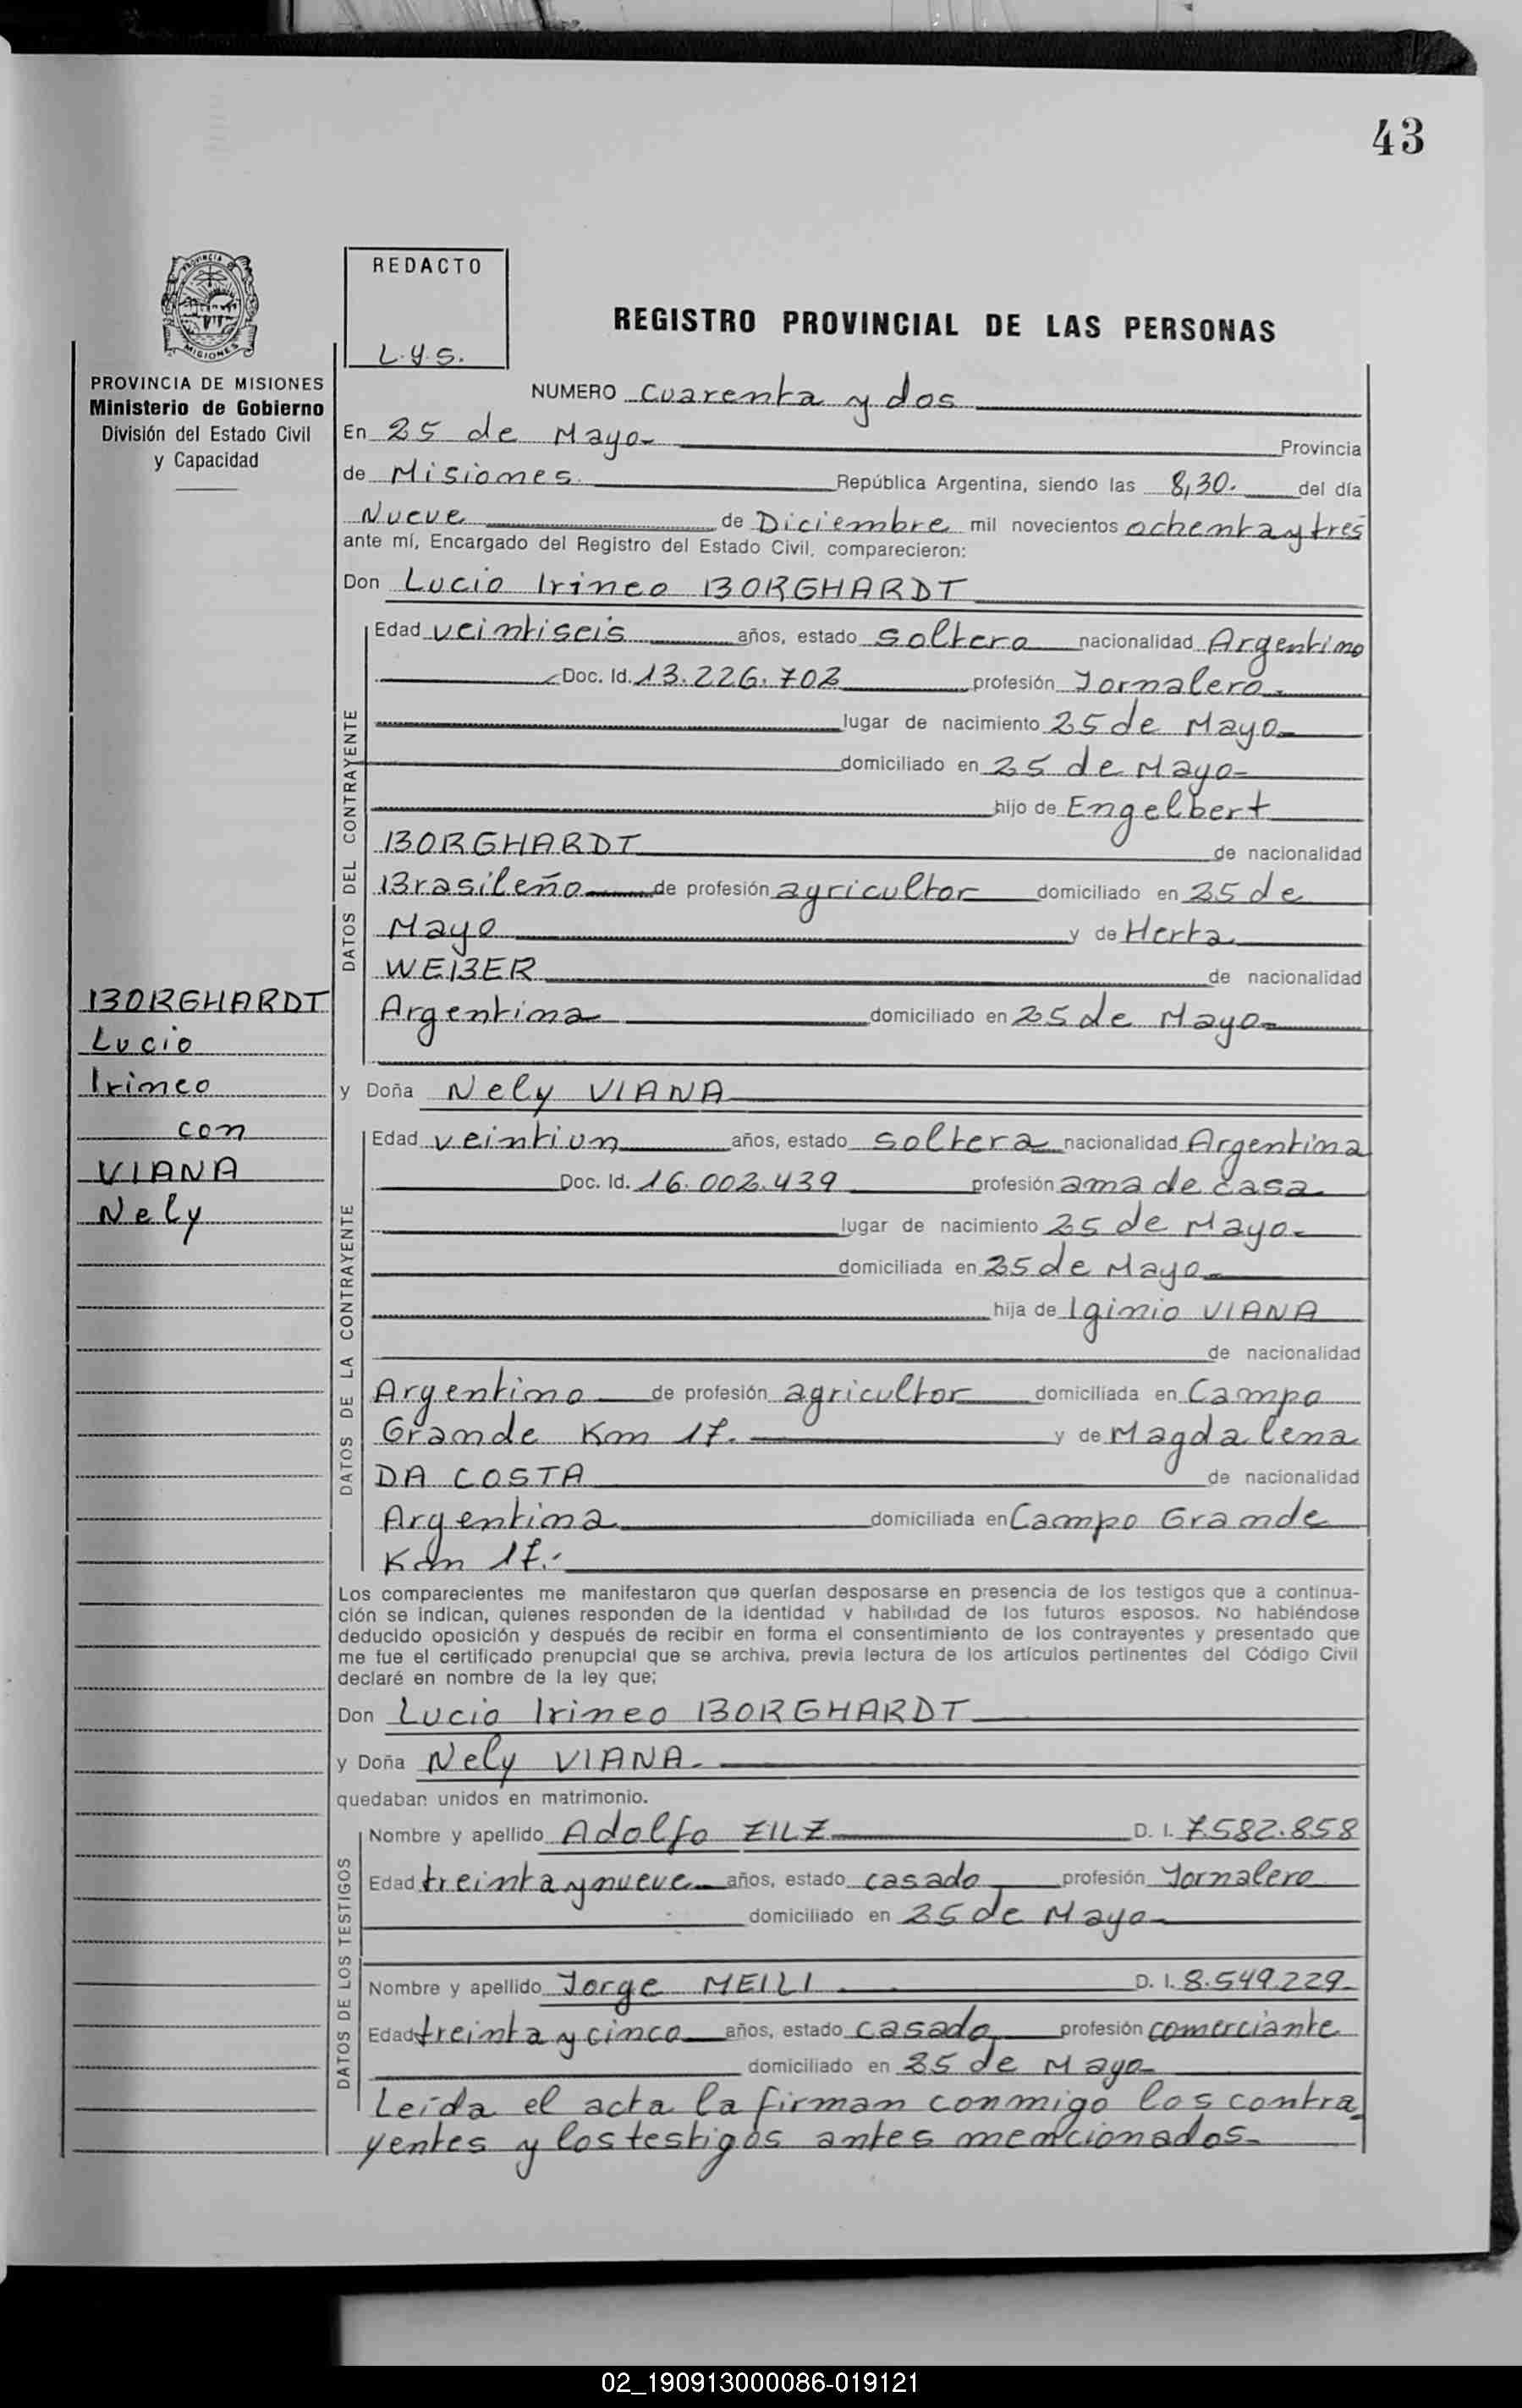 43
PROVINCIA
MISIONES
PROVINCIA DE MISIONES
Ministerio de Gobierno
División del Estado Civil
y Capacidad
REDACTO
L.y.s.
REGISTRO PROVINCIAL DE LAS PERSONAS
NUMERO cuarenta y dos
En 25 de Mayo- Provincia
de Misiones. República Argentina, siendo las 8,30. del día
Nueve de Diciembre mil novecientos ochenta y tres
ante mí, Encargado del Registro del Estado Civil, comparecieron:
Don Lucio Irineo BORGHARDT
DATOS DEL CONTRAYENTE
Edad veintiseis años, estado soltero nacionalidad Argentino
Doc. Id. 13.226.702 profesión Jornalero.
lugar de nacimiento 25 de Mayo-
domiciliado en 25 de Mayo-
hijo de Engelbert
BORGHARDT de nacionalidad
Brasileño de profesión agricultor domiciliado en 25 de
Mayo y de Herta
WEBER de nacionalidad
Argentina domiciliado en 25 de Mayo-
BORGHARDT
Lucio
Irineo
con
VIANA
Nely
y Doña Nely VIANA
DATOS DE LA CONTRAYENTE
Edad veintiun años, estado soltera nacionalidad Argentina
Doc. Id. 16.002.439 profesión ama de casa
lugar de nacimiento 25 de Mayo-
domiciliada en 25 de Mayo-
hija de Iginio VIANA
de nacionalidad
Argentino de profesión agricultor domiciliada en Campo
Grande Km 17. y de Magdalena
DA COSTA de nacionalidad
Argentina domiciliada en Campo Grande
Km 17.-
Los comparecientes me manifestaron que querían desposarse en presencia de los testigos que a continua-
ción se indican, quienes responden de la identidad y habilidad de los futuros esposos. No habiéndose
deducido oposición y después de recibir en forma el consentimiento de los contrayentes y presentado que
me fue el certificado prenupcial que se archiva, previa lectura de los artículos pertinentes del Código Civil
declaré en nombre de la ley que;
Don Lucio Irineo BORGHARDT
y Doña Nely VIANA-
quedaban unidos en matrimonio.
DATOS DE LOS TESTIGOS
Nombre y apellido Adolfo ZILZ D. I. 7.582.858
Edad treinta y nueve años, estado casado profesión Jornalero
domiciliado en 25 de Mayo-
Nombre y apellido Jorge MEILI D. I. 8.549.229-
Edad treinta y cinco años, estado casado profesión comerciante
domiciliado en 25 de Mayo-
Leída el acta la firman conmigo los contra_
yentes y los testigos antes mencionados-
02_190913000086-019121